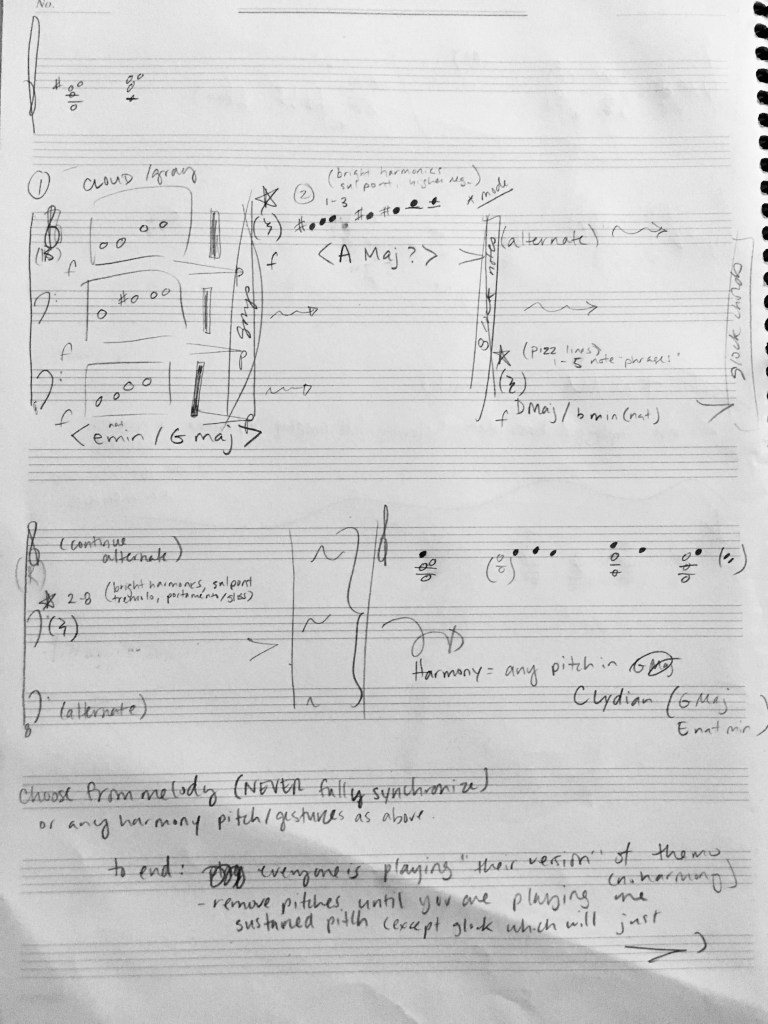 No.
① CLOUD / gray
② (bright harmonics
sul pont, higher reg.)
1-3
* mode
(15)
f
f
< A Maj? >
(alternate)
8 glock notes
glock chords
f
(pizz lines)
1-5 note "phrases"
f
< emin / G maj >
nat
f DMaj / bmin (nat)
(continue
alternate)
2-8 (bright harmonics, sul pont
tremolo, portamento/gliss)
(alternate)
8
Harmony = any pitch in G Maj
C Lydian (G Maj
E nat min)
choose from melody (NEVER fully synchronize)
or any harmony pitch/gestures as above.
to end: everyone is playing "their version" of theme
(n. harmony)
- remove pitches until you are playing one
sustained pitch (except glock which will just